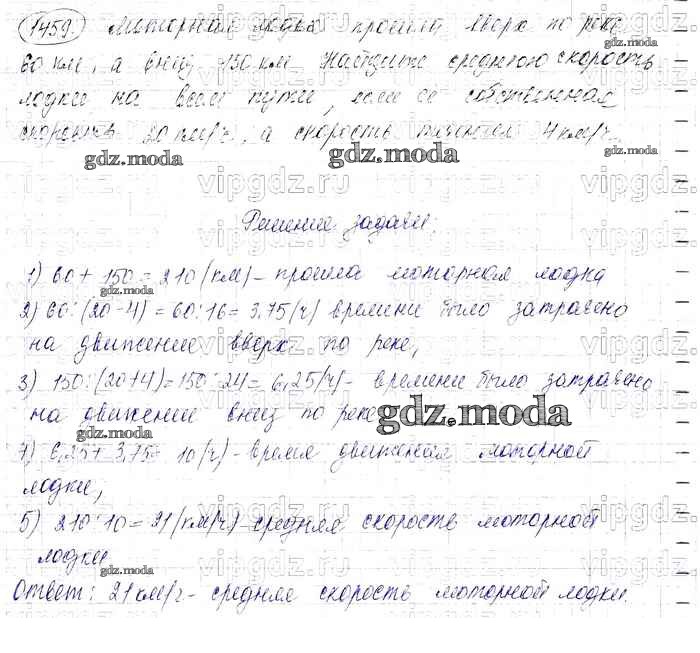 1459. Моторная лодка прошла вверх по реке
60 км, а вниз 150 км. Найдите среднюю скорость
лодки на всем пути, если её собственная
скорость 20 км/ч, а скорость течения 4 км/ч.
gdz.moda gdz.moda
vipgdz.ru vipgdz.ru
Решение задачи:
1) 60 + 150 = 210 (км) - прошла моторная лодка
gdz.moda
2) 60 : (20-4) = 60 : 16 = 3,75 (ч) времени было затрачено
на движение вверх по реке,
vipgdz.ru vipgdz.ru
3) 150 : (20+4) = 150 : 24 = 6,25 (ч) - времени было затрачено
на движение вниз по реке
gdz.moda
gdz.moda
4) 6,25 + 3,75 = 10 (ч) - время движения моторной
лодки,
vipgdz.ru vipgdz.ru
5) 210 : 10 = 21 (км/ч) - средняя скорость моторной
лодки
gdz.moda
Ответ: 21 км/ч - средняя скорость моторной лодки.
vipgdz.ru vipgdz.ru